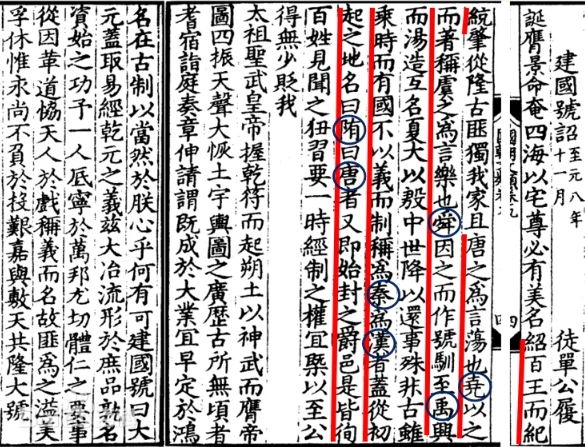 建國號詔 至元八年
十一月
徒單公履
誕膺景命奄四海以宅尊必有美名紹百王而紀
四
統肇從隆古匪獨我家且唐之為言蕩也堯以之
而著稱虞之為言樂也舜因之而作號馴至禹興
而湯造互名夏大以殷中世降以還事殊非古雖
乘時而有國不以義而制稱為秦為漢者蓋從初
起之地名曰隋曰唐者又即始封之爵邑是皆徇
百姓見聞之狃習要一時經制之權宜槩以至公
得無少貶我
太祖聖武皇帝握乾符而起朔土以神武而膺帝
圖四振天聲大恢土宇輿圖之廣歷古所無頃者
耆宿詣庭奏章伸請謂既成於大業宜早定於鴻
名在古制以當然於朕心乎何有可建國號曰大
元蓋取易經乾元之義茲大冶流形於庶品孰名
資始之功予一人厎寧於萬邦尤切體仁之要事
從因革道協天人於戲稱義而名故匪為之溢美
孚休惟永尚不負於投艱嘉與敷天共隆大號